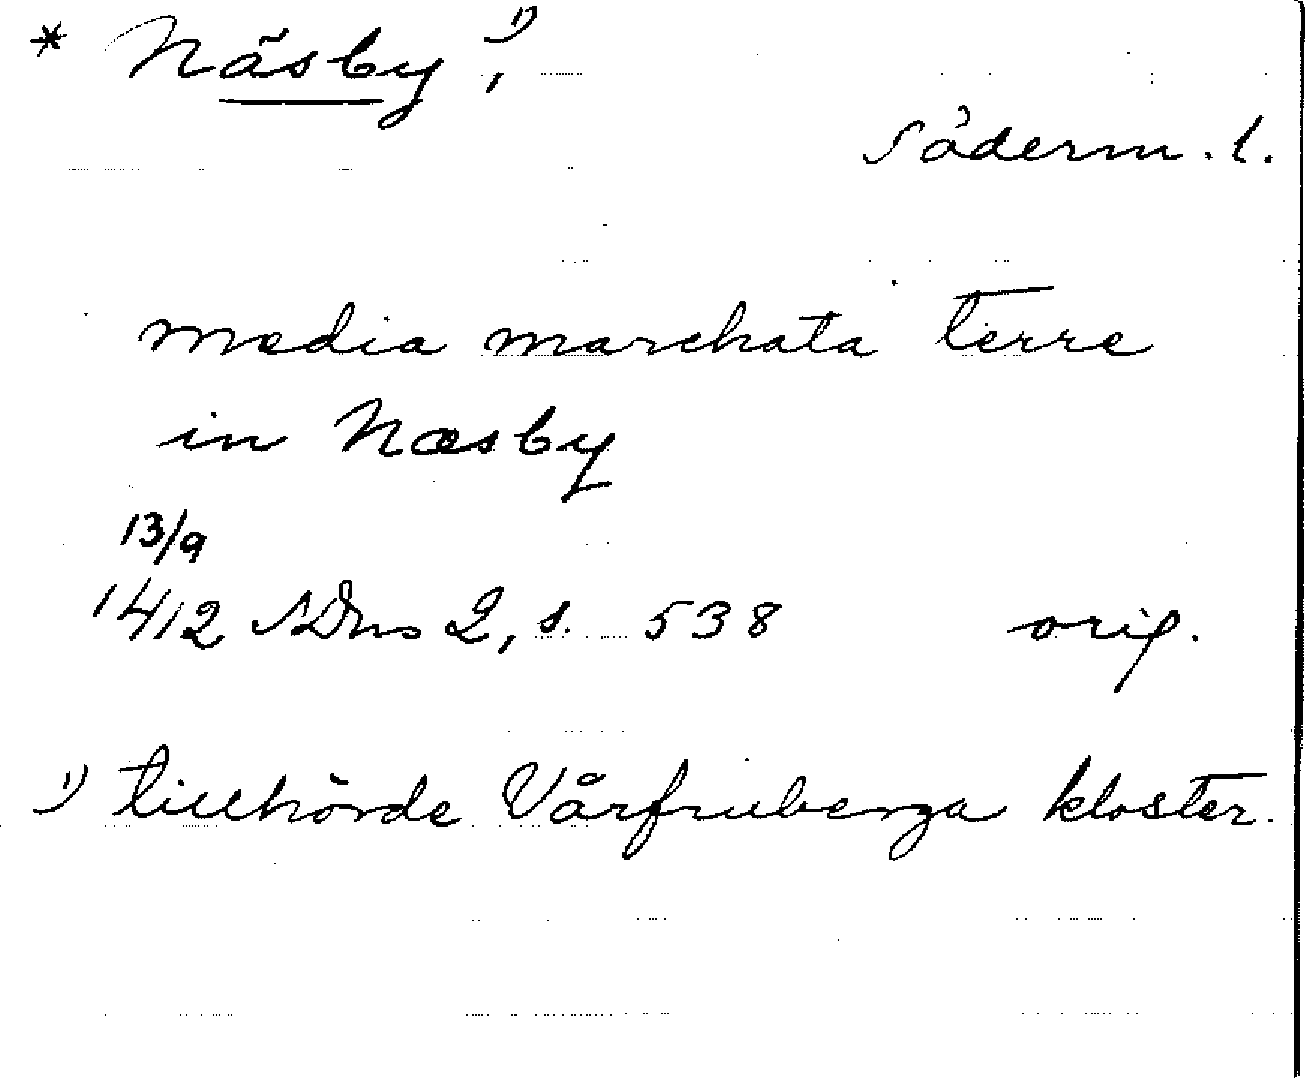 * Näsby,¹⁾
Söderm. l.
media marchata terre
in Næsby
13/9
1412 SDns 2, s. 538 orig.
¹⁾ tillhörde Vårfruberga kloster.